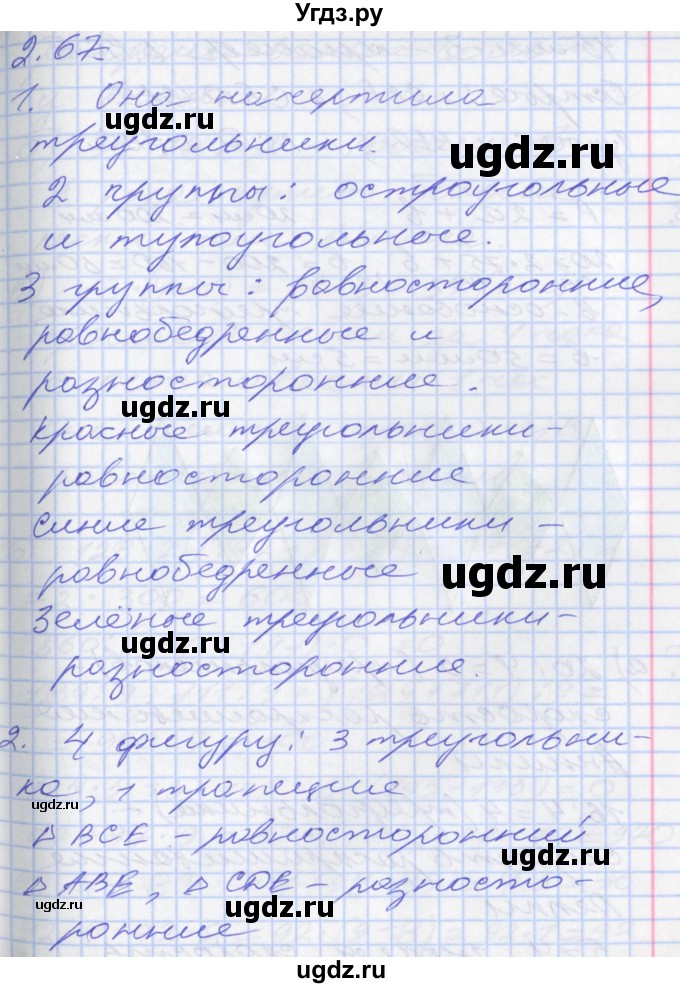 Угдз.ру
2.67.
1. Она начертила
треугольники.
2 группы: остроугольные
и тупоугольные.
3 группы: равносторонние,
равнобедренные и
разносторонние.
Красные треугольники -
равносторонние
Синие треугольники -
равнобедренные
Зелёные треугольники -
разносторонние.
2. 4 фигуру: 3 треугольни-
ка, 1 трапеция
△ BCE - равносторонний
△ ABE, △ CDE - разносто-
ронние
ugdz.ru
ugdz.ru
ugdz.ru
ugdz.ru
ugdz.ru
ugdz.ru
ugdz.ru
ugdz.ru
ugdz.ru
ugdz.ru
ugdz.ru